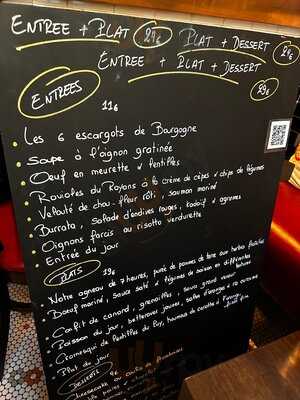 ENTREE + PLAT 21€ PLAT + DESSERT 21€
ENTREE + PLAT + DESSERT 29€
ENTREES 11€
Les 6 escargots de Bourgogne
Soupe à l'oignon gratinée
Oeuf en meurette et lentilles
Ravioles du Royans à la crème de cèpes et chips de légumes
Velouté de chou-fleur rôti, saumon mariné
Burrata, salade d'endives rouges, kadaif et agrumes
Oignons farcis au risotto verdurette
Entrée du jour
PLATS 19€
Notre agneau de 7 heures, purée de pommes de terre aux herbes fraîches
Boeuf mariné, sauce saté et légumes de saison en différentes
Confit de canard, grenailles et sauce grand veneur
Poisson du jour, betterave jaune, salsa d'orange à la coriandre
Cromesqui de lentilles du Puy, houmous de carotte à l'orange
Plat du jour
DESSERTS
Cheesecake